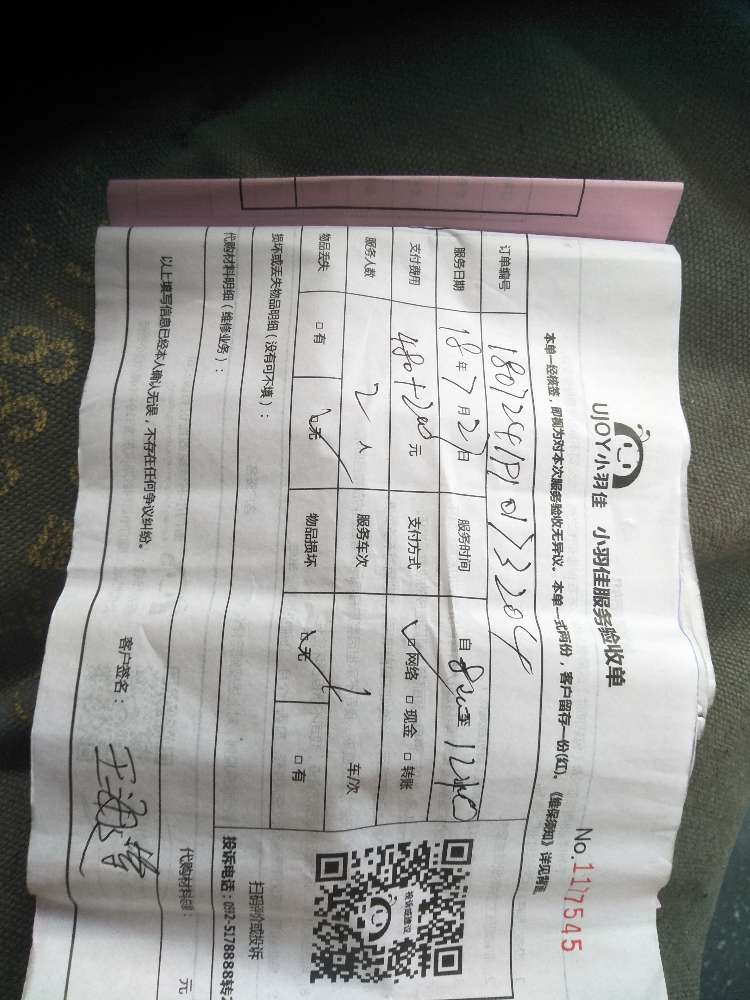 UJOY小羽佳 小羽佳服务验收单
No.1117545
本单一经核签，即视为对本次服务验收无异议。本单一式两份，客户留存一份(红)。《维保须知》详见背面
订单编号
服务日期 18年7月27日 服务时间 自 至
支付费用 480+200元 支付方式 网络 现金 转账
服务人数 2人 服务车次 1 车/次
物品丢失 有 无 物品损坏 无 有
损坏或丢失物品明细（没有可不填）：
代购材料明细（维修业务）： 代购材料额： 元
以上填写信息已经本人确认无误，不存在任何争议纠纷。 客户签名：
投诉或建议
扫码评价或投诉
投诉电话：0592-5178888转